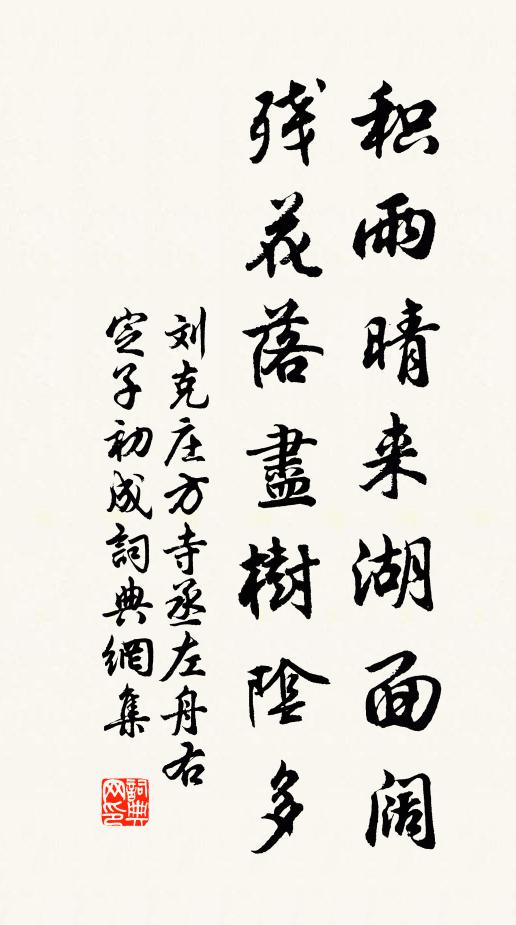 积雨晴来湖面阔
残花落盡樹陰多
刘克庄方寺丞左舟右
定子初成詞典網集
詞典网印